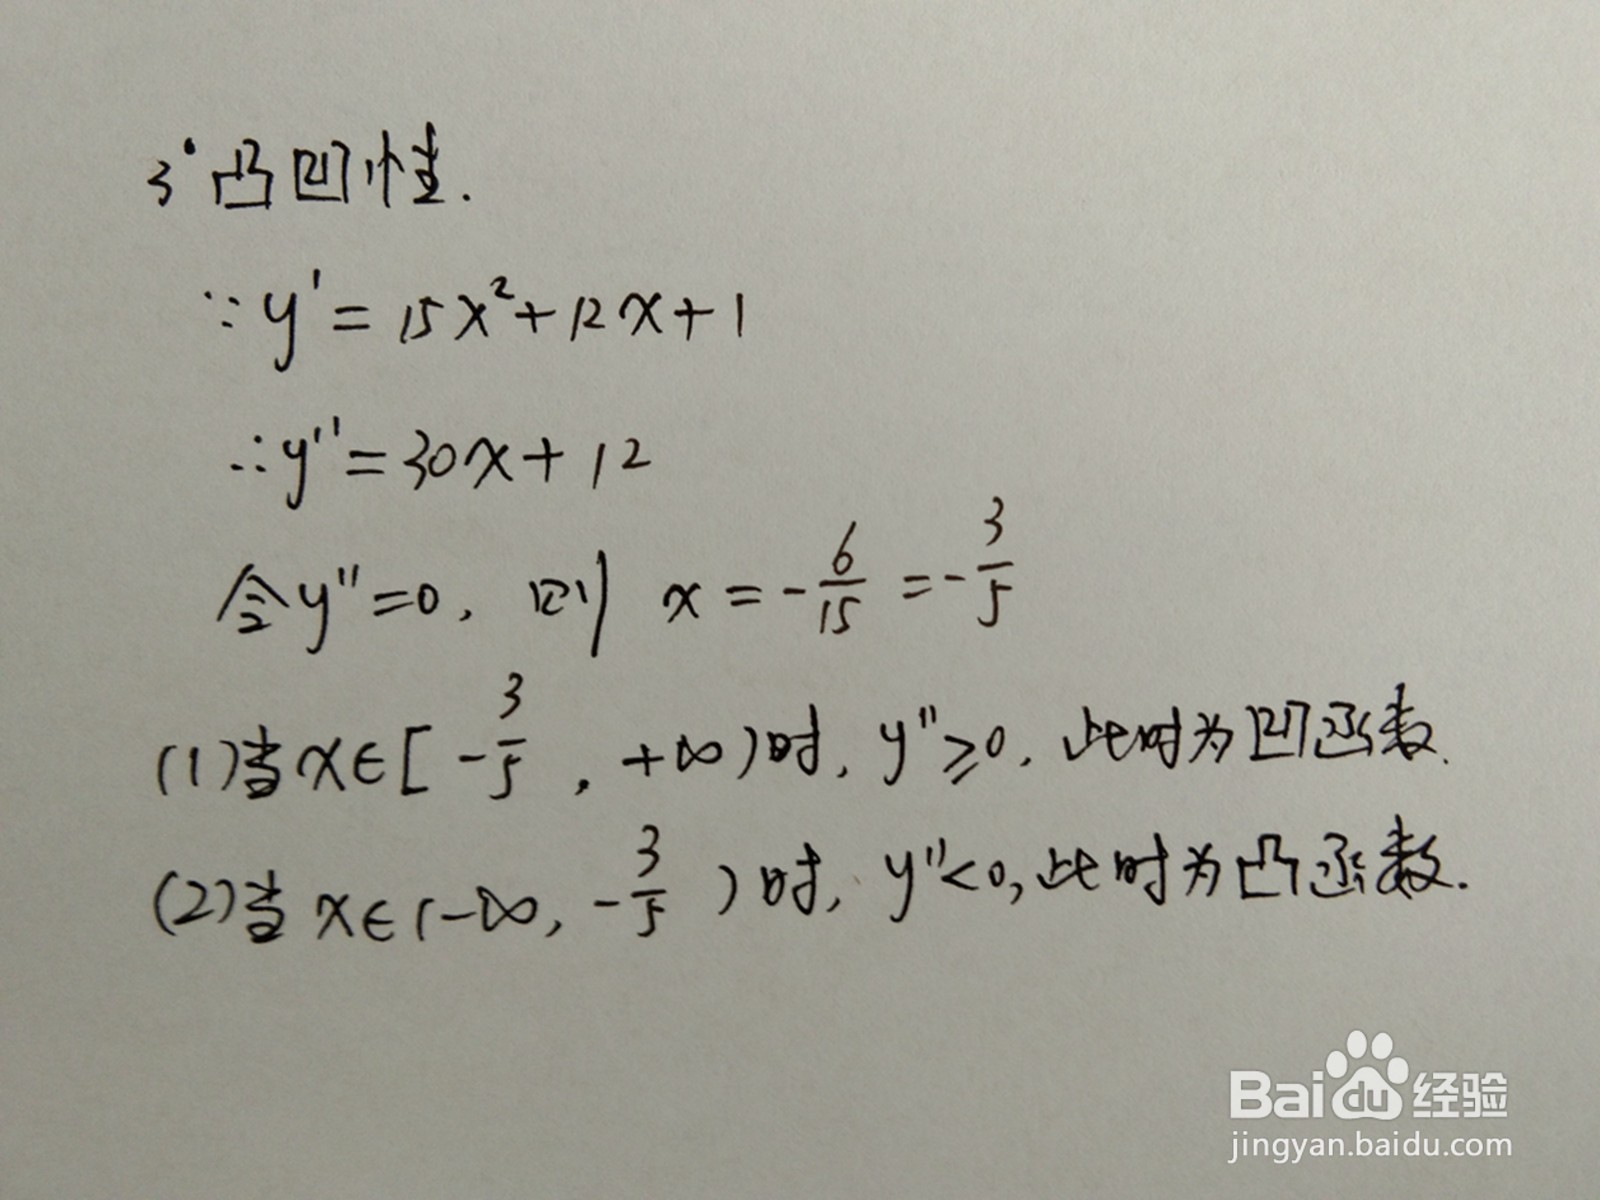 3° 凸凹性.
∵ y' = 15x²+12x+1
∴ y'' = 30x+12
令y''=0, 则 x = -6/15 = -3/5
(1)当x∈[-3/5, +∞)时, y''≥0, 此时为凹函数.
(2)当x∈(-∞, -3/5)时, y''<0, 此时为凸函数.
Baidu经验
jingyan.baidu.com